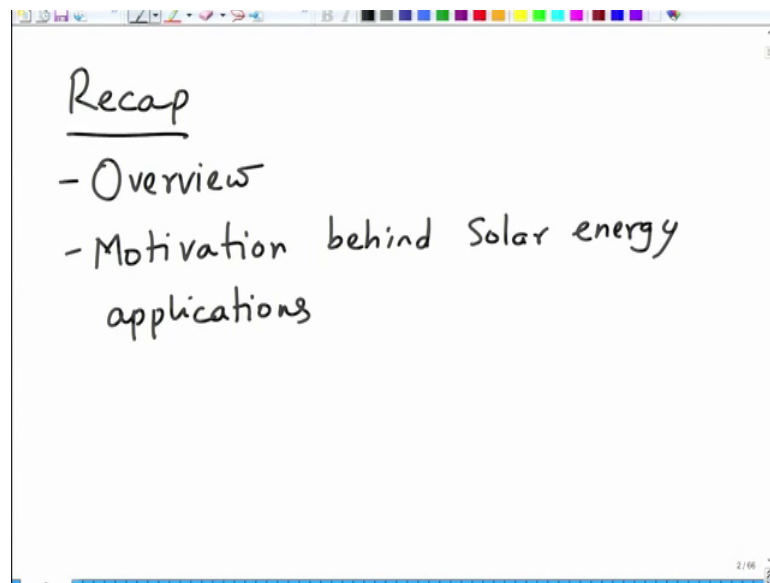 B I
Recap
- Overview
- Motivation behind Solar energy
applications
2/66